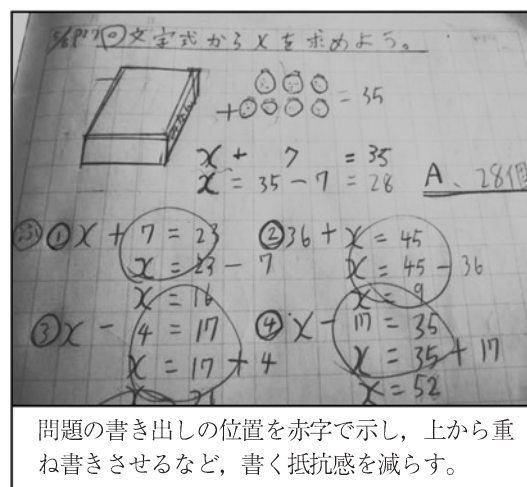 5/8 p27 ⓪ 文字式からxを求めよう。
+ = 35
x + 7 = 35
x = 35 - 7 = 28
A、28個
① x + 7 = 23
x = 23 - 7
x = 16
② 36 + x = 45
x = 45 - 36
x = 9
③ x - 4 = 17
x = 17 + 4
x = 21
④ x - 17 = 35
x = 35 + 17
x = 52
問題の書き出しの位置を赤字で示し，上から重
ね書きさせるなど，書く抵抗感を減らす。